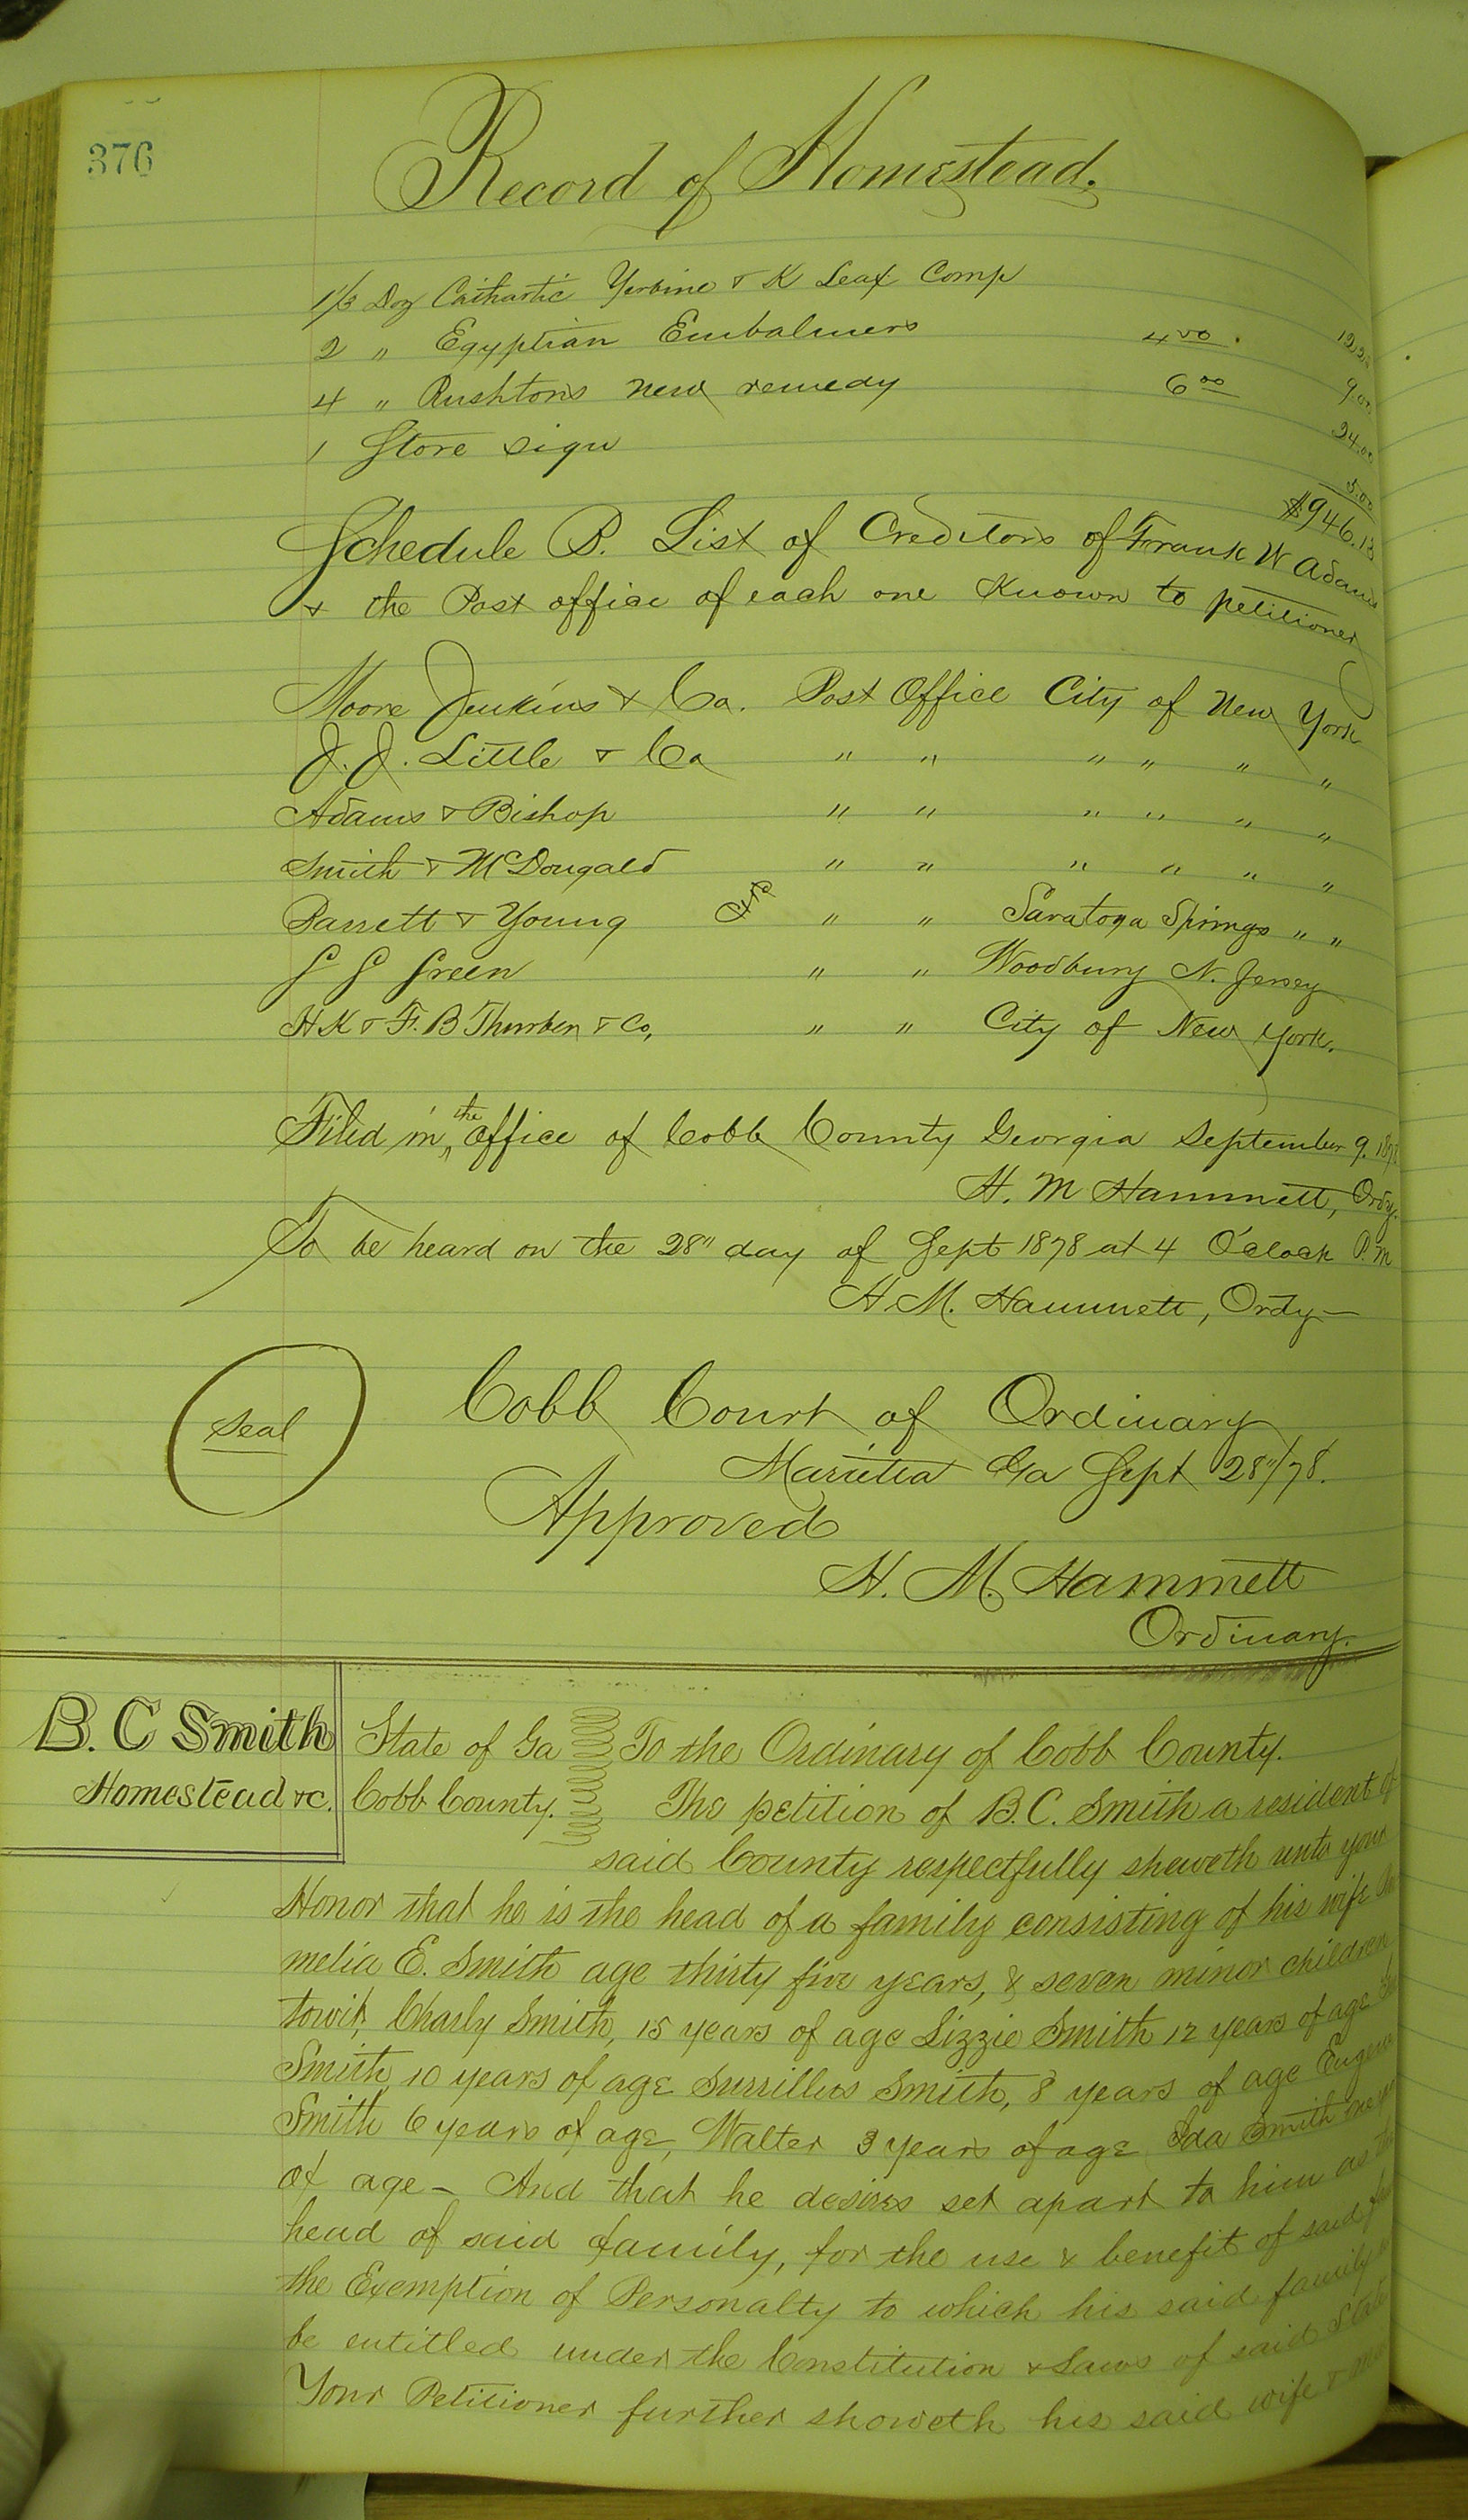 376
Record of Homestead.
1 1/3 Doz Cathartic Yerbine & K Leaf Comp
2 " Egyptian Embalmers 4 00 .
4 " Rushtons new remedy 6 00 9.00
1 Store sign 24.00
5.00
$946.13
Schedule B. List of Creditors of Frank W Adams
& the Post office of each one Known to petitioner
Moore Jenkins & Co. Post Office City of New York
J. J. Little & Co " " " " " "
Adams & Bishop " " " " " "
Smith & McDougald " " " " " "
Parrett & Young " " Saratoga Springs " "
G G Green " " Woodbury N. Jersey
H K & F. B Thurber & Co, " " City of New York.
Filed in the office of Cobb County Georgia September 9. 1878
H. M Hammett, Ordy.
To be heard on the 28" day of Sept 1878 at 4 O'clock P.M
H. M. Hammett, Ordy—
Seal
Cobb Court of Ordinary
Marietta Ga Sept 28"/78.
Approved
H. M. Hammett
Ordinary.
B. C Smith
Homestead &c.
State of Ga To the Ordinary of Cobb County.
Cobb County. The petition of B. C. Smith a resident of
said County respectfully sheweth unto your
Honor that he is the head of a family consisting of his wife
melia E. Smith age thirty five years, & seven minor children
towit, Charly Smith, 15 years of age Lizzie Smith 12 years of age
Smith 10 years of age Surrillus Smith, 8 years of age
Smith 6 years of age, Walter 3 years of age Ida Smith
of age – And that he desires set apart to him as the
head of said family, for the use & benefit of said
the Exemption of Personalty to which his said family
be entitled under the Constitution & Laws of said State
Your Petitioner further showeth his said wife &